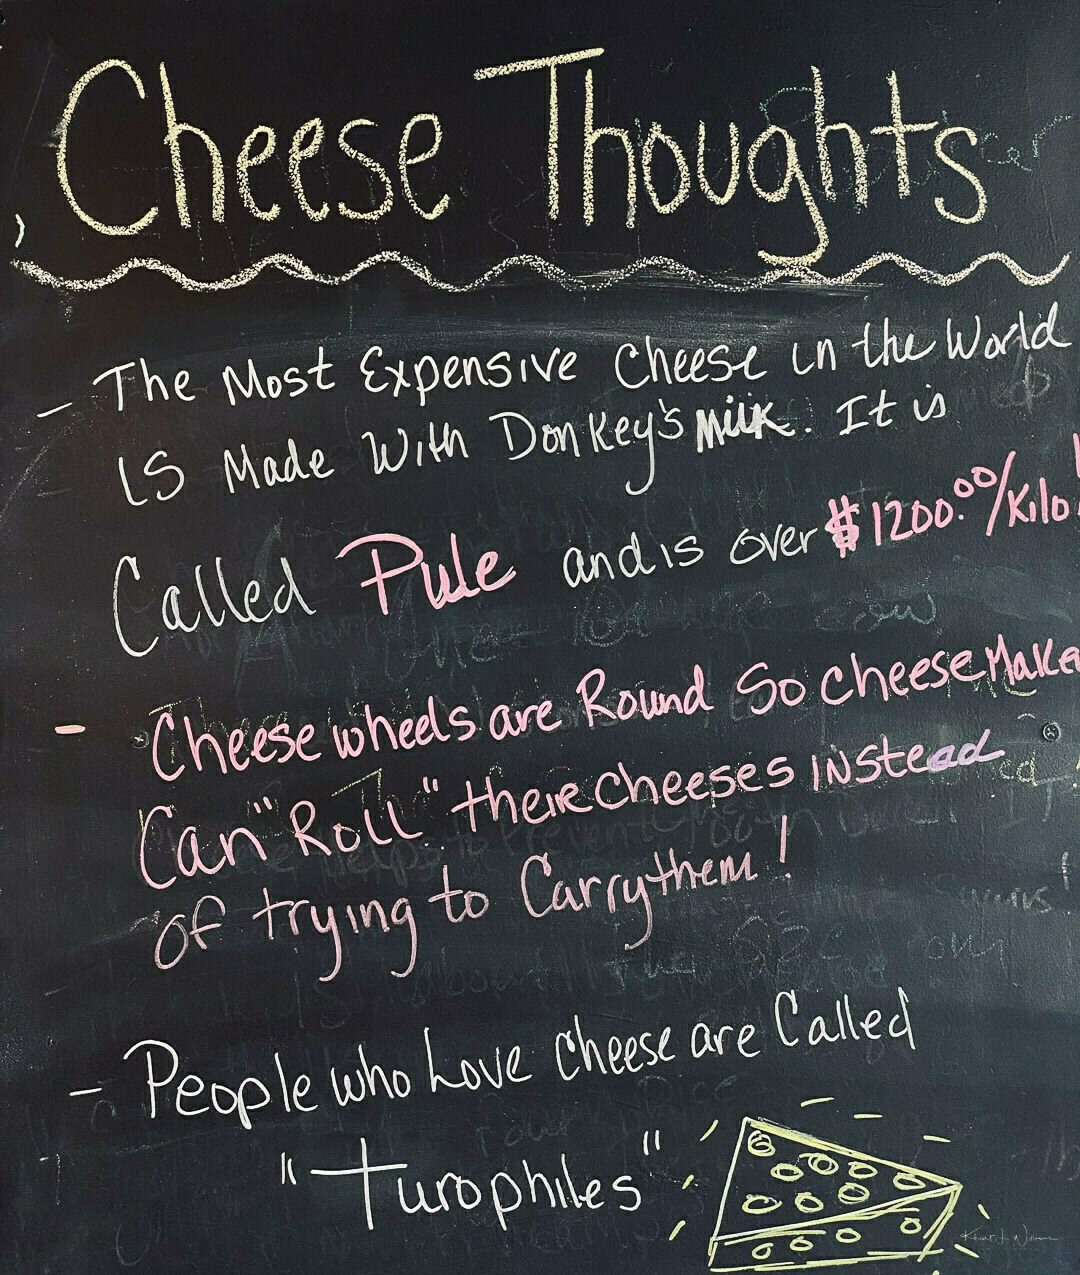 Cheese Thoughts
- The Most Expensive Cheese in the World
is Made With Donkey's Milk. It is
Called Pule and is over $1200.00/Kilo!
- Cheese wheels are Round So cheese Make
Can "Roll" their cheeses instead
of trying to Carry them!
- People who Love Cheese are Called
"Turophiles"